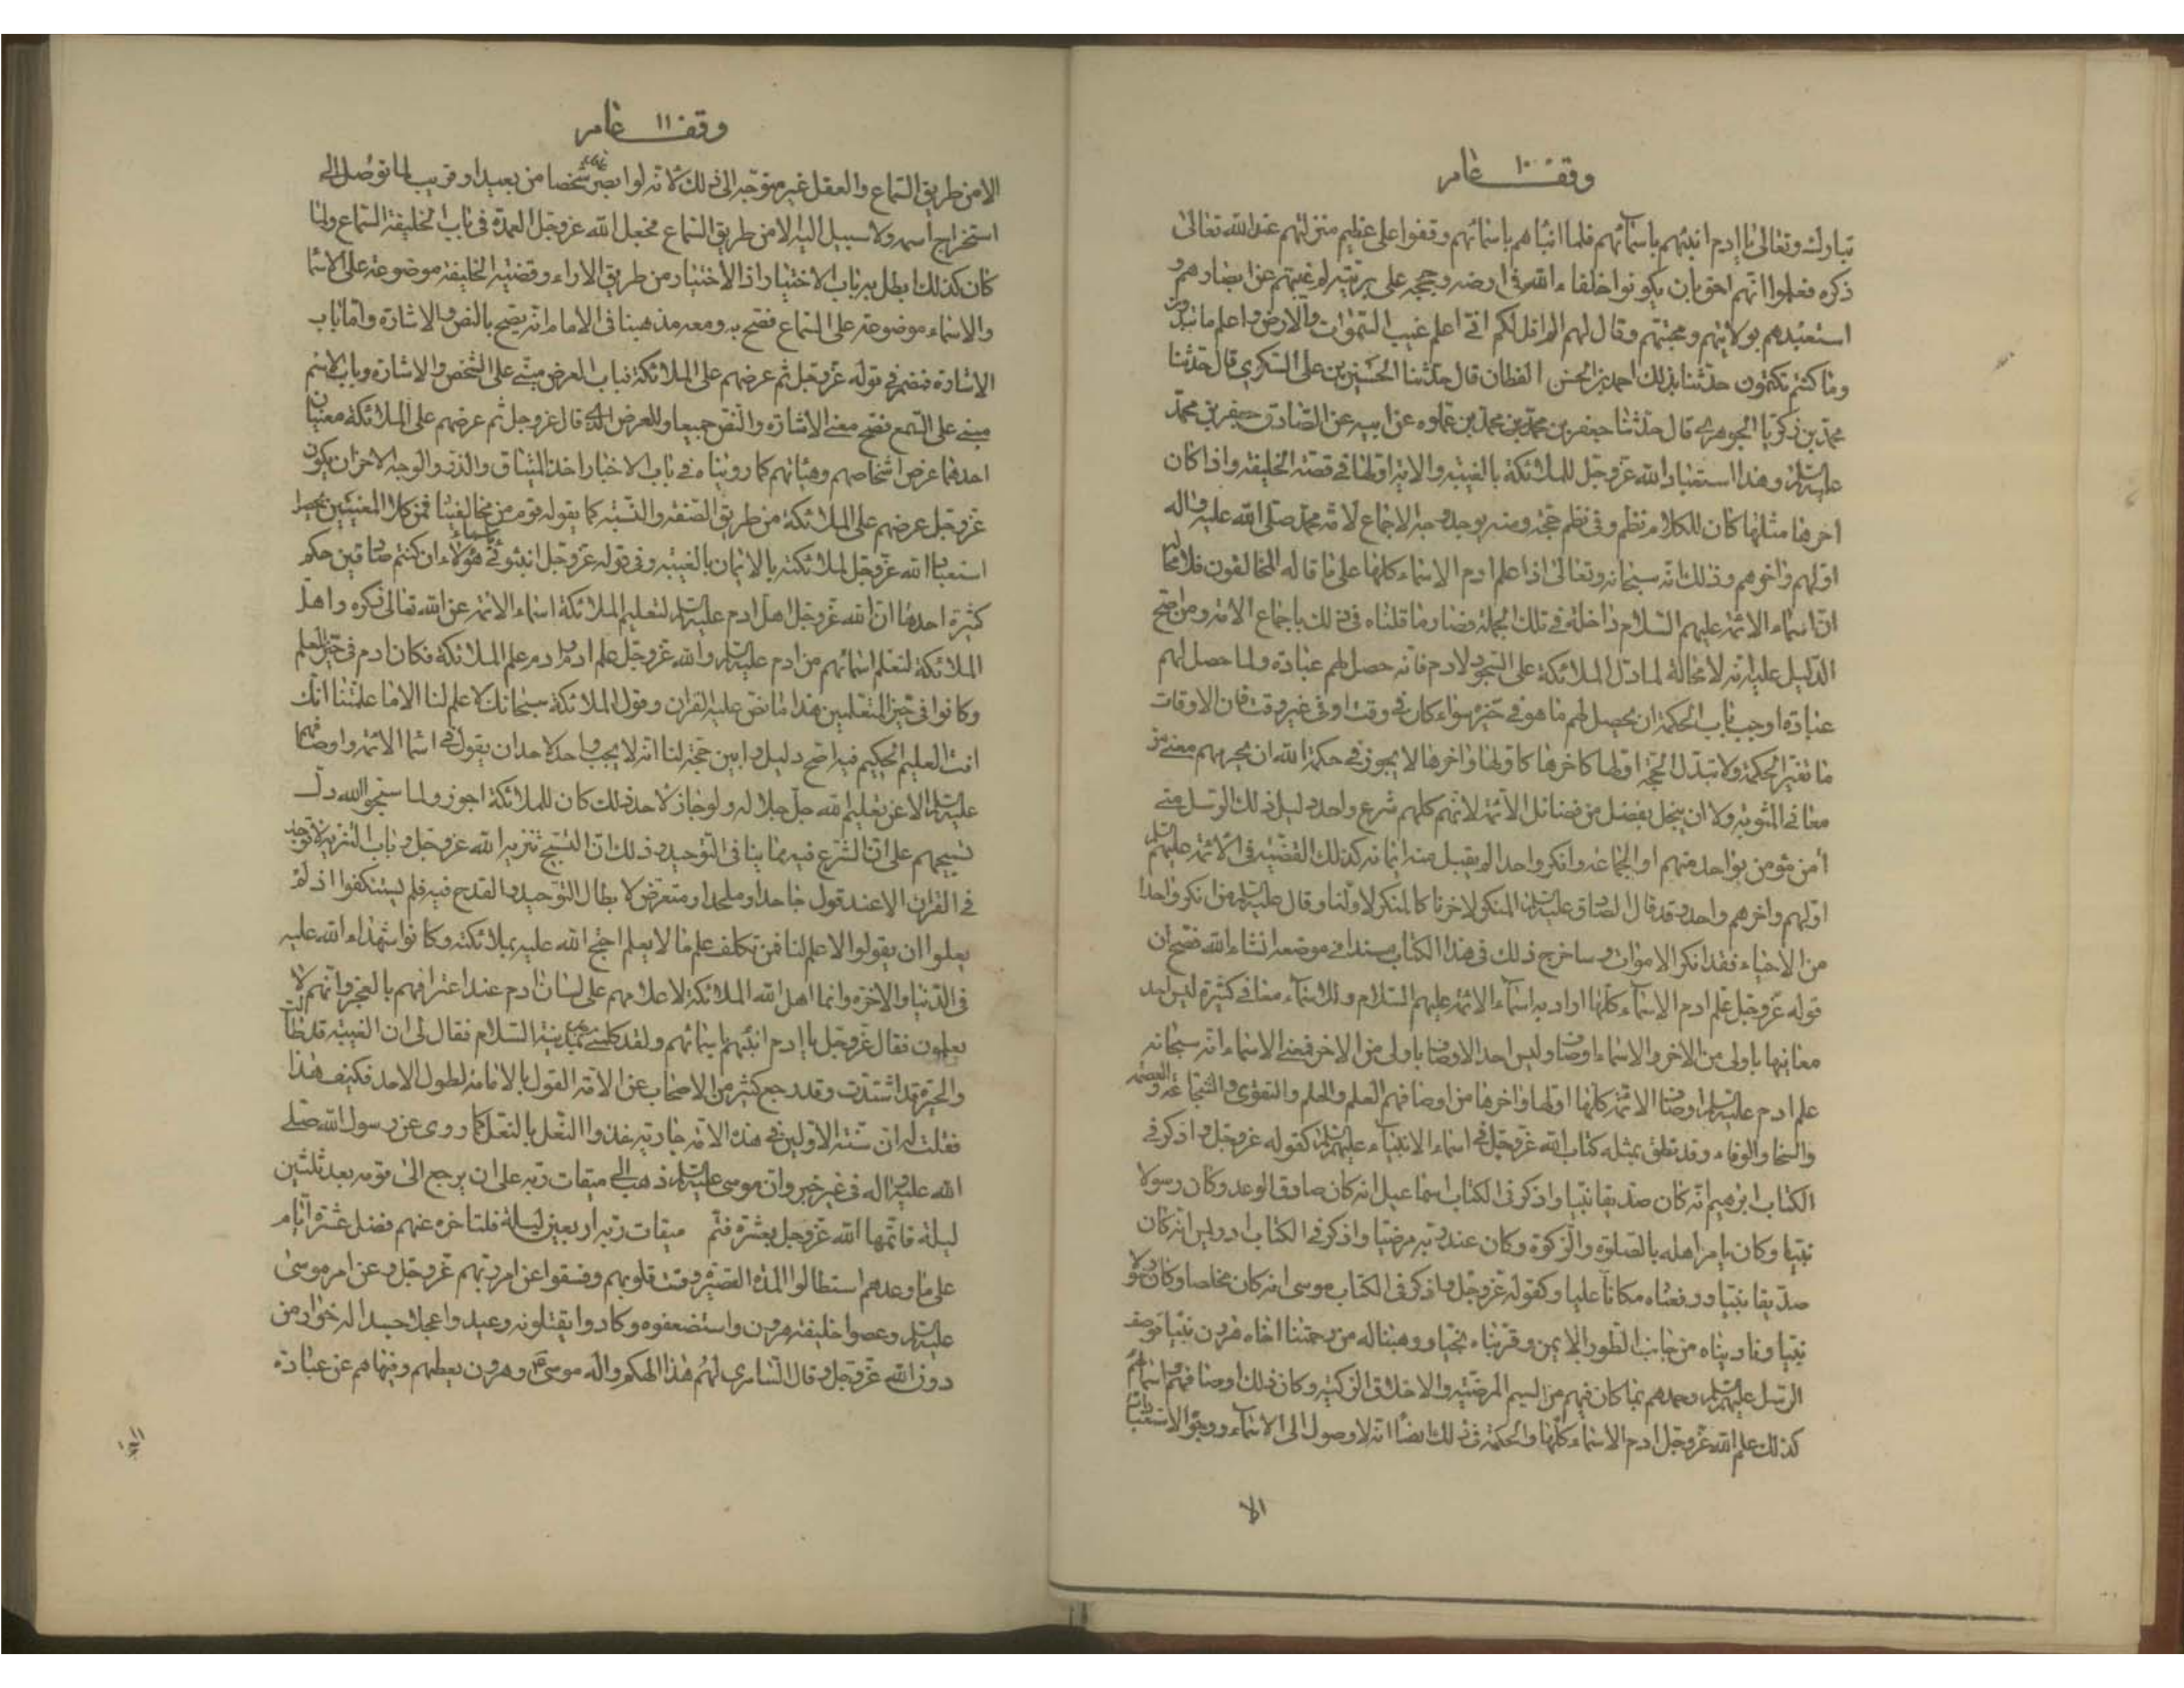 وقف ١٠ عامر
تبارك وتعالى يا ادم انبئهم باسمائهم فلما انباهم باسمائهم وقفوا على عظيم منزلتهم عند الله تعالى
ذكره فعلموا انهم احق بان يكونوا خلفاء الله فى ارضه وحججه على بريته ثم غيبهم عن ابصارهم و
استعبدهم بولايتهم ومحبتهم وقال لهم الم اقل لكم انى اعلم غيب السموات والارض واعلم ما تبدون
وما كنتم تكتمون حدثنا بذلك احمد بن الحسن القطان قال حدثنا الحسين بن على السكرى قال حدثنا
محمد بن زكريا الجوهرى قال حدثنا جعفر بن محمد بن محمد بن عماره عن ابيه عن الصادق جعفر بن محمد
عليه السلم وهذا استعباد الله عز وجل للملائكة بالغيبه والايه اولها فى قصة الخليفه واذا كان
اخرها مثلها كان للكلام نظم وفى نظم حجه ومنه يوجد وجه الاجماع لامة محمد صلى الله عليه واله
اولهم واخرهم وذلك انه سبحانه وتعالى اذا علم ادم الاسماء كلها على ما قاله المخالفون فلا محا له
ان اسماء الائمه عليهم السلام داخلة فى تلك الجملة فصار ما قلناه فى ذلك باجماع الامه ومن اصح
الدليل عليه انه لا محالة لما دل الملائكة على السجود لادم فانه حصل لهم عبادة ولما حصل لهم
عبادة اوجب باب الحكمة ان يحصل لهم ما هو فى حيزه سواء كان فى وقت او فى غير وقت فان الاوقات
ما تغير الحكمة ولا تبدل الحجه اولها كاخرها كاولها واخرها لا يجوز فى حكمة الله ان يحرمهم معنى من
معانى المثوبه ولا ان يبخل بفضل من فضائل الائمه لانهم كلهم شرع واحد دليل ذلك الرسل متى
امن مؤمن بواحد منهم او الجماعه وانكر واحدا لم يقبل منه ايمانه كذلك القضيه فى الائمه عليهم السلم
اولهم واخرهم واحد وقد قال الصادق عليه السلم المنكر لاخرنا كالمنكر لاولنا وقال عليه السلم من انكر واحدا
من الاحياء فقد انكر الاموات وساخرج ذلك فى هذا الكتاب مسندا فى موضعه انشاء الله فصح ان
قوله عز وجل علم ادم الاسماء كلها اراد به اسماء الائمه عليهم السلام وللاسماء معانى كثيرة ليس احد
معانيها باولى من الاخر والاسماء اوصاف وليس احد الاوصاف باولى من الاخر فمعنى الاسماء انه سبحانه
علم ادم عليه السلم اوصاف الائمه كلها اولها واخرها ومن اوصافهم العلم والحلم والتقوى والشجاعه والعصمه
والسخا والوفاء وقد نطق بمثله كتاب الله عز وجل فى اسماء الانبياء عليهم السلم كقوله عز وجل واذكر فى
الكتاب ابرهيم انه كان صديقا نبيا واذكر فى الكتاب اسماعيل انه كان صادق الوعد وكان رسولا
نبيا وكان يامر اهله بالصلوة والزكوة وكان عند ربه مرضيا واذكر فى الكتاب ادريس انه كان
صديقا نبيا ورفعناه مكانا عليا وكقوله عز وجل واذكر فى الكتاب موسى انه كان مخلصا وكان رسولا
نبيا وناديناه من جانب الطور الايمن وقربناه نجيا ووهبنا له من رحمتنا اخاه هرون نبيا فوصف
الرسل عليهم السلم وحمدهم بما كان فيهم من الشيم المرضيه والاخلاق الزكيه وكان ذلك اوصافهم واسماءهم
كذلك علم الله عز وجل ادم الاسماء كلها والحكمة فى ذلك ايضا انه لا وصول الى الاسماء ووجوه الاستعبادات
الا
وقف ١١ عامر
الا من طريق السماع والعقل غير متوجه الى ذلك لانه لو ابصر عاقل شخصا من بعيد او قريب لما توصل الى
استخراج اسمه ولا سبيل اليه الا من طريق السماع فجعل الله عز وجل العمدة فى باب الخليفة السماع ولما
كان كذلك ابطل به باب الاختيار اذ الاختيار من طريق الاراء وقضيه الخليفه موضوعه على الاسما
والاسماء موضوعة على السماع فصح به ومعه مذهبنا فى الامام انه يصح بالنص والاشارة واما باب
الاشارة فمضمر فى قوله عز وجل ثم عرضهم على الملائكة فباب العرض مبنى على الشخص والاشارة وباب الاسم
مبنى على السمع فصح معنى الاشارة والنص جميعا وللعرض الذى قال عز وجل ثم عرضهم على الملائكة معنيان
احدهما عرض اشخاصهم وهيئاتهم كما رويناه فى باب الاخبار اخذ الميثاق والذر والوجه الاخر ان يكون
عز وجل عرضهم على الملائكة من طريق الصفه والنسبه كما يقوله قوم من مخالفينا فمن كلا المعنيين يحصل
استعباد الله عز وجل لملائكته بالايمان بالغيبه وفى قوله عز وجل انبئونى باسماء هؤلاء ان كنتم صادقين حكم
كثيرة احدها ان الله عز وجل اهل ادم عليه السلم لتعليم الملائكة اسماء الائمه عن الله تعالى ذكره واهل
الملائكة لتعلم اسمائهم من ادم عليه السلم والله عز وجل علم ادم وادم علم الملائكة فكان ادم فى حيز المعلم
وكانوا فى حيز المتعلمين هذا ما نص عليه القران وقول الملائكة سبحانك لا علم لنا الا ما علمتنا انك
انت العليم الحكيم فيه اصح دليل وابين حجة لنا انه لا يجب واحد لاحد ان يقول فى اسما الائمه واوصافهم
عليهم السلم الا عن تعليم الله جل جلاله ولو جاز لاحد ذلك كان للملائكة اجوز ولما سبحوا الله دل
تسبيحهم على ان الشرع فيه مما ينافى التوحيد وذلك ان التسبيح تنزيه الله عز وجل وباب التنزيه لا يوجد
فى القران الا عند قول جاحد او ملحد او متعرض لابطال التوحيد والقدح فيه فلم يستنكفوا اذ لم
يعلموا ان يقولوا لا علم لنا فمن تكلف علم ما لا يعلم احتج الله عليه بملائكته وكانوا شهداء الله عليه
فى الدنيا والاخرة وانما اهل الله الملائكة لاعلامهم على لسان ادم عند اعترافهم بالعجز وانهم لا
يعلمون فقال عز وجل يا ادم انبئهم باسمائهم ولقد كلمنى رجل بمدينة السلام فقال لى ان الغيبه قد طالت
والحيرة قد اشتدت وقد رجع كثير من الاصحاب عن الامه القول بالامامه لطول الامد فكيف هذا
فقلت له ان سنة الاولين فى هذه الامه جاريه حذو النعل بالنعل كما روى عن رسول الله صلى
الله عليه واله فى غير خبر وان موسى عليه السلم ذهب الى ميقات ربه على ان يرجع الى قومه بعد ثلثين
ليلة فاتمها الله عز وجل بعشرة فتم ميقات ربه اربعين ليلة فلما تاخره عنهم فضل عشرة ايام
على ما وعدهم استطالوا المدة القصيره وقست قلوبهم وفسقوا عن امر ربهم عز وجل وعن امر موسى
عليه السلم وعصوا خليفته هرون واستضعفوه وكادوا يقتلونه وعبدوا عجلا جسدا له خوار من
دون الله عز وجل وقال السامرى لهم هذا الهكم واله موسى وهرون يعظهم وينهاهم عن عبادة